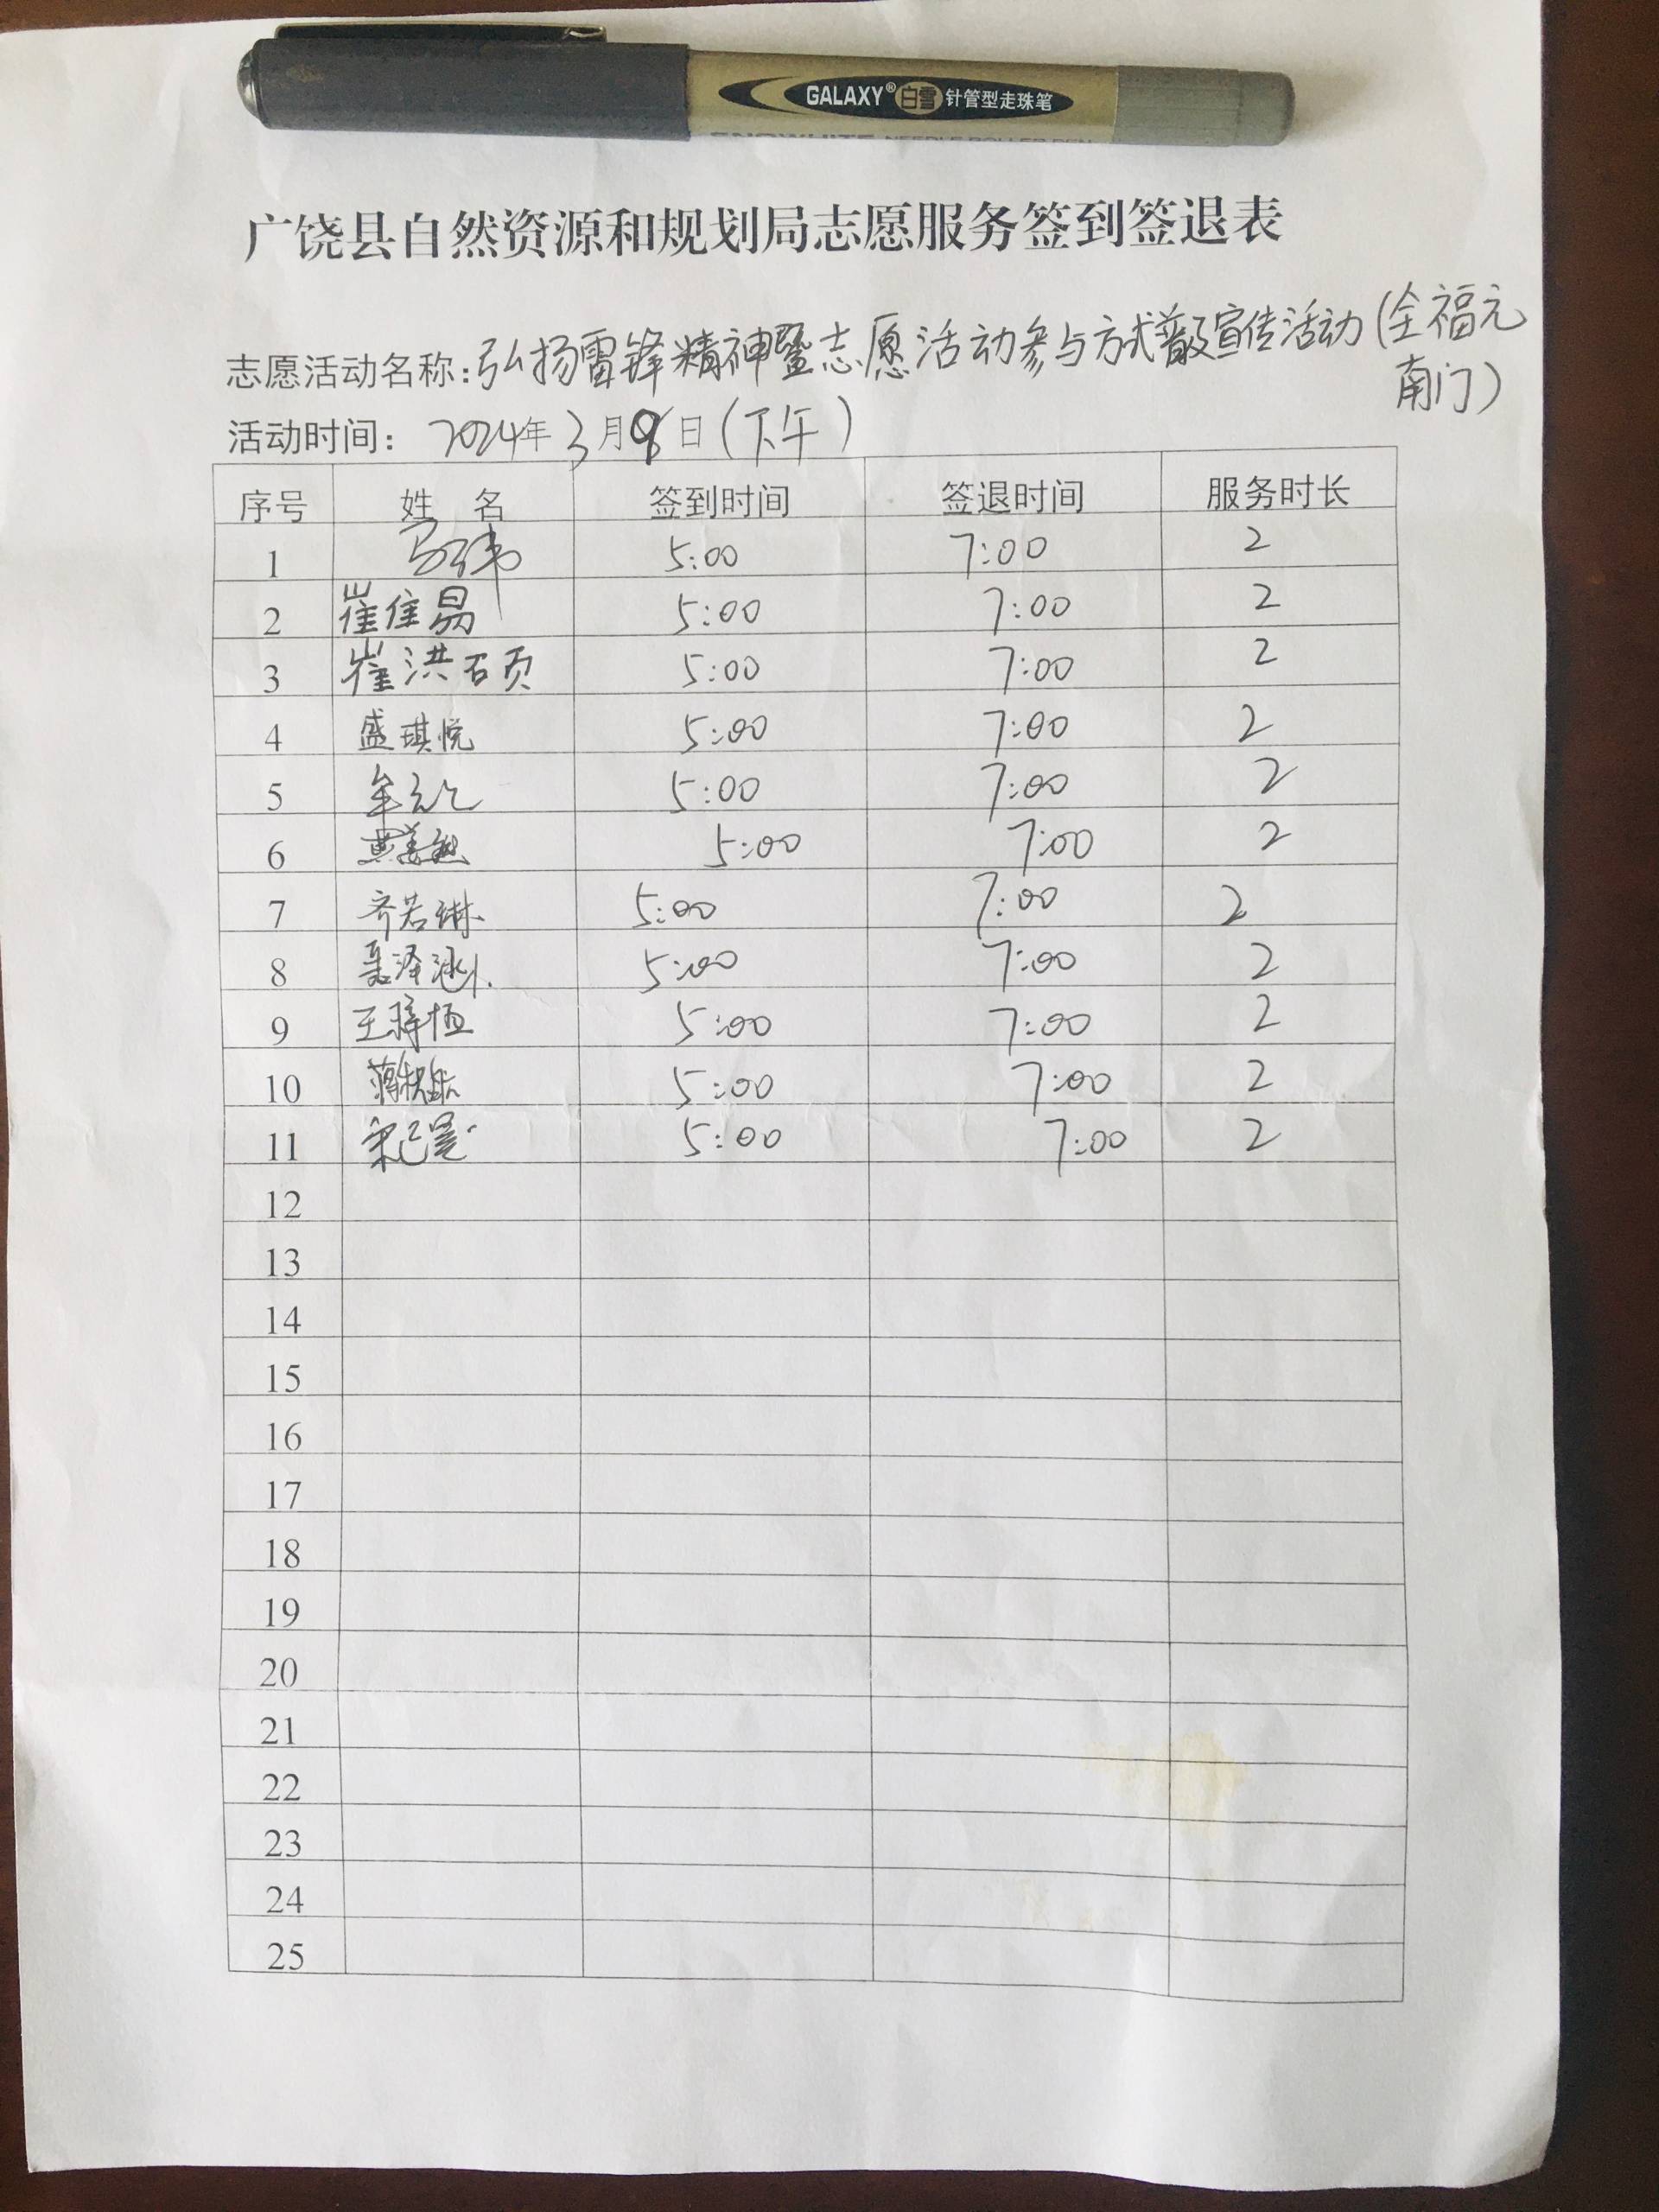 GALAXY® 白雪 针管型走珠笔
SNOWHITE NEEDLE ROLLER PEN
广饶县自然资源和规划局志愿服务签到签退表
志愿活动名称:弘扬雷锋精神暨志愿活动参与方式普及宣传活动(全福元
南门)
活动时间: 2024年3月9日(下午)
序号 姓 名 签到时间 签退时间 服务时长
1 5:00 7:00 2
2 崔佳易 5:00 7:00 2
3 崔洪硕 5:00 7:00 2
4 盛琪悦 5:00 7:00 2
5 5:00 7:00 2
6 5:00 7:00 2
7 齐若琳 5:00 7:00 2
8 聂泽涵 5:00 7:00 2
9 5:00 7:00 2
10 5:00 7:00 2
11 5:00 7:00 2
12
13
14
15
16
17
18
19
20
21
22
23
24
25